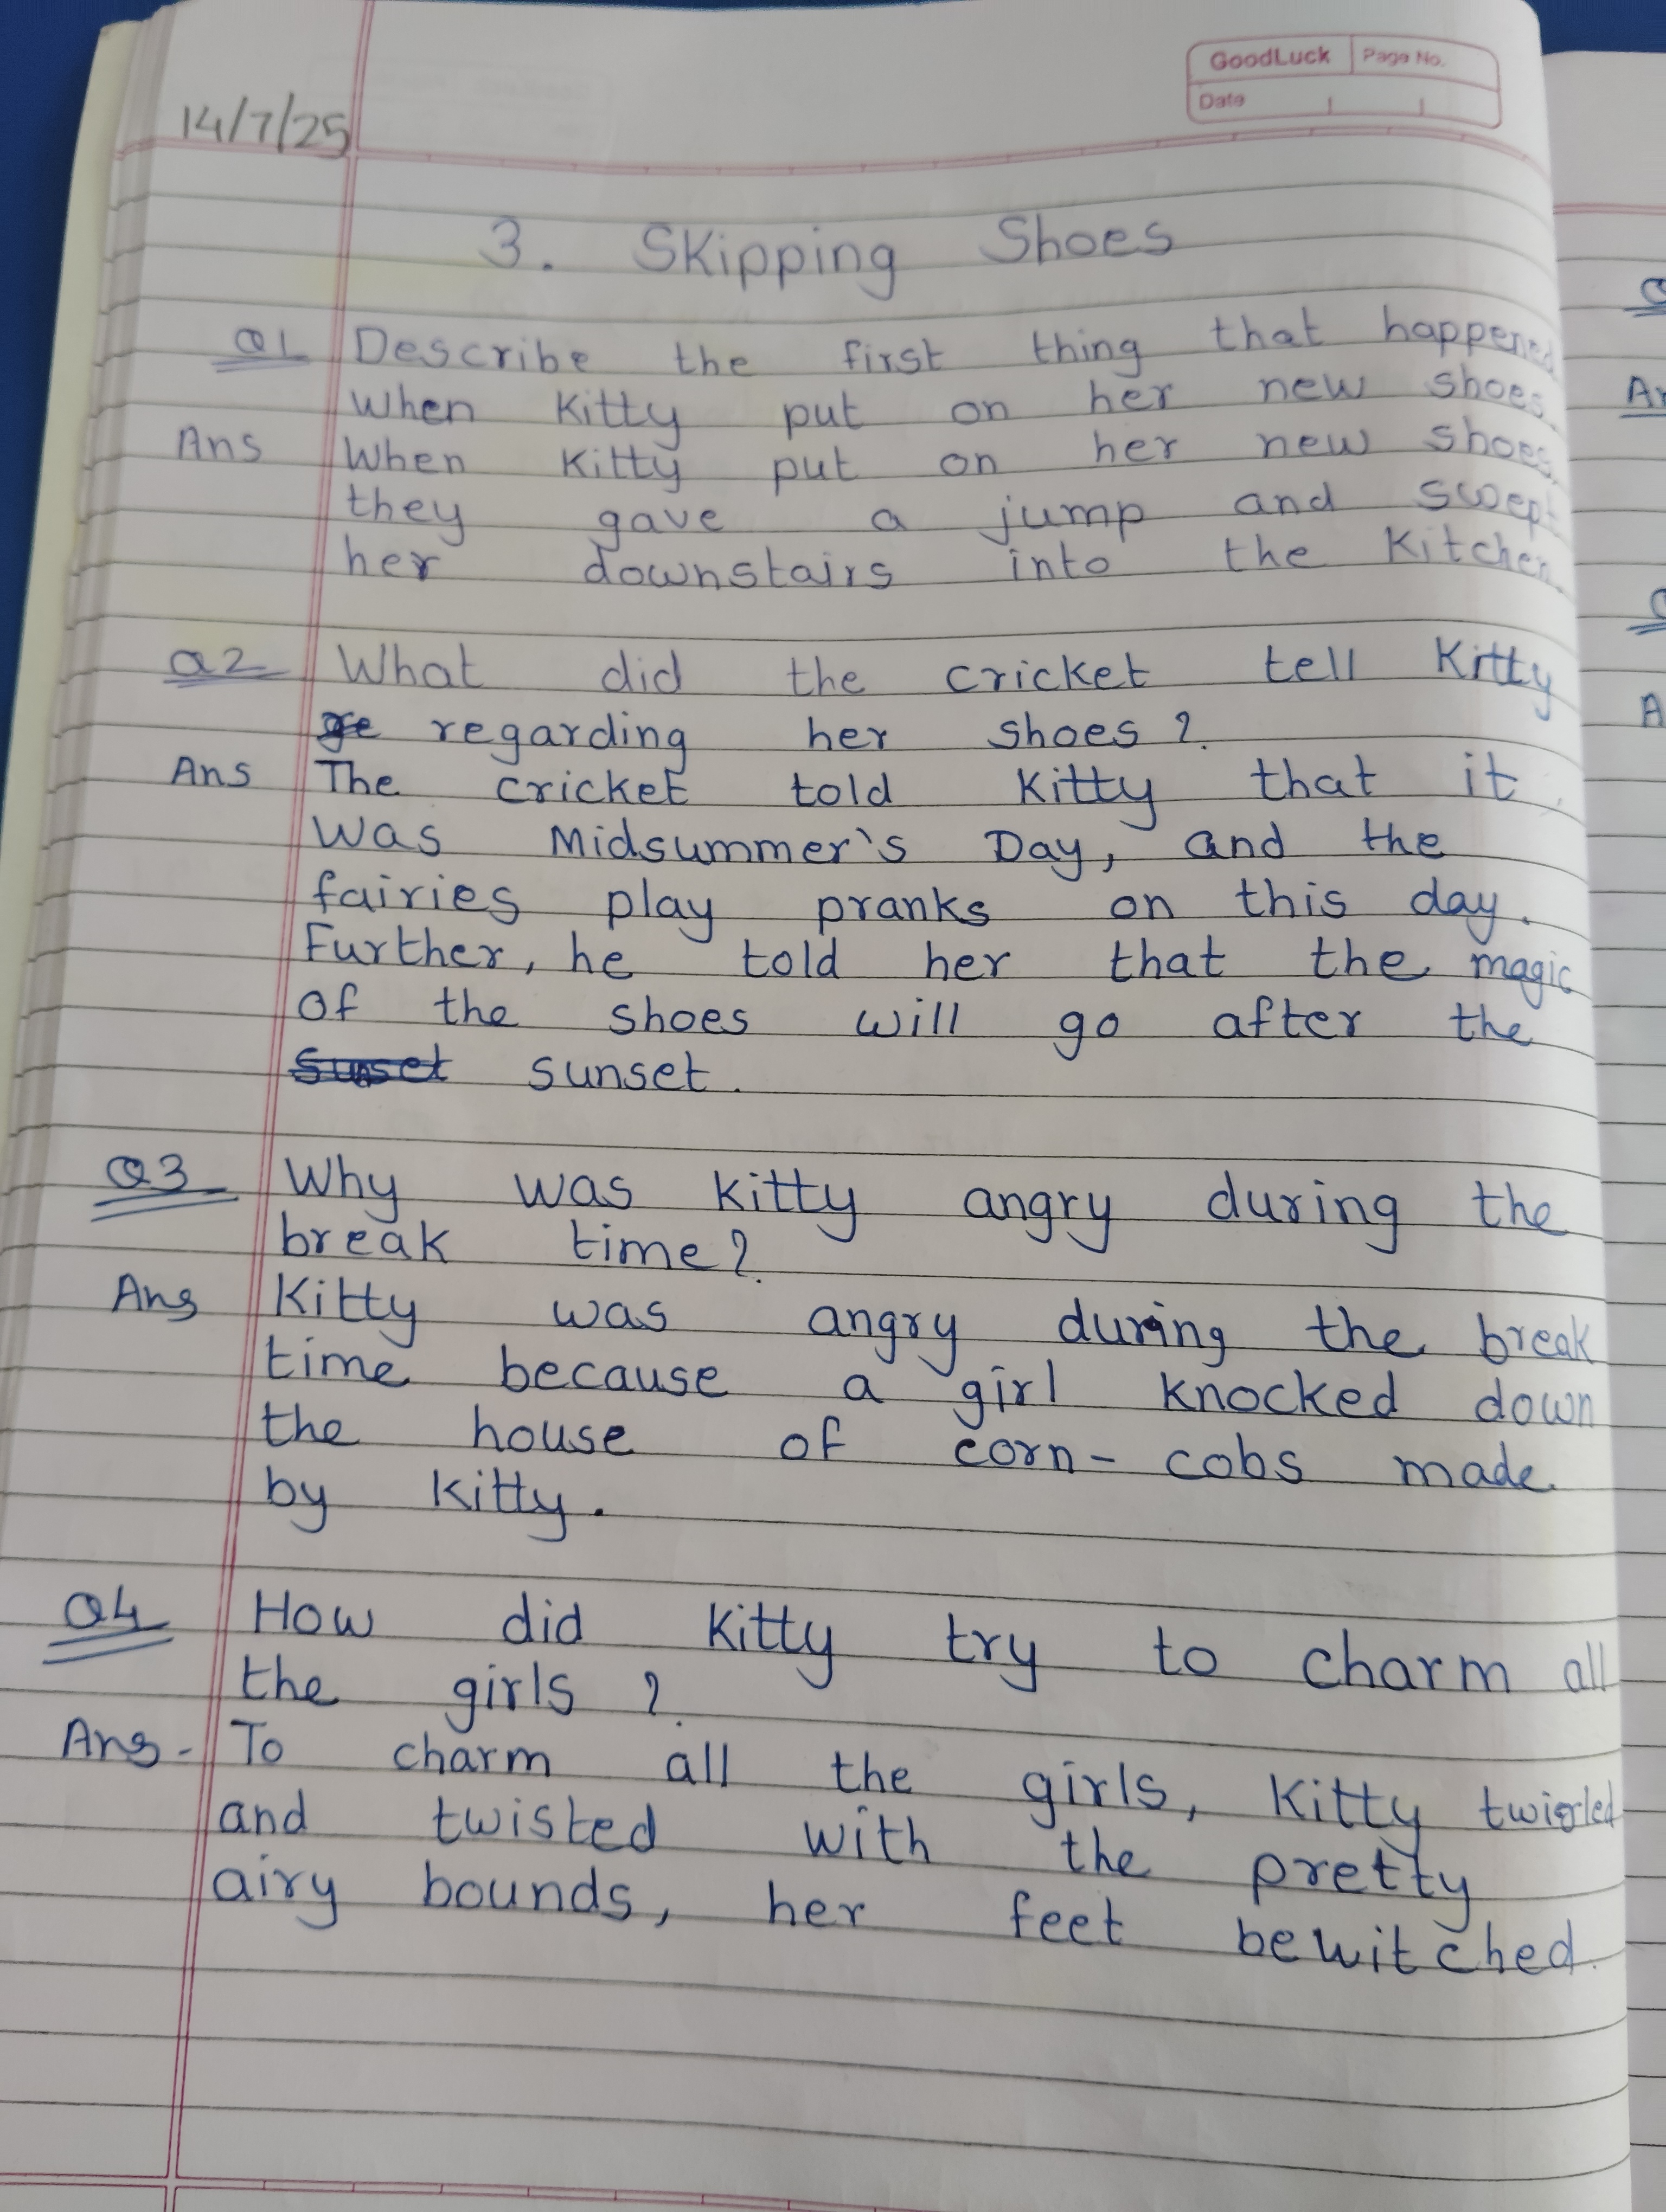 GoodLuck Page No.
Date
14/7/25
3. Skipping Shoes
Q1 Describe the first thing that happened
when Kitty put on her new shoes.
Ans When Kitty put on her new shoes,
they gave a jump and swept
her downstairs into the kitchen.
Q2 What did the cricket tell Kitty
re regarding her shoes?
Ans The cricket told Kitty that it
was Midsummer's Day, and the
fairies play pranks on this day.
Further, he told her that the magic
of the shoes will go after the
sunset sunset.
Q3 Why was Kitty angry during the
break time?
Ans Kitty was angry during the break
time because a girl knocked down
the house of corn-cobs made
by Kitty.
Q4 How did Kitty try to charm all
the girls?
Ans- To charm all the girls, Kitty
and twisted with the pretty
airy bounds, her feet bewitched.